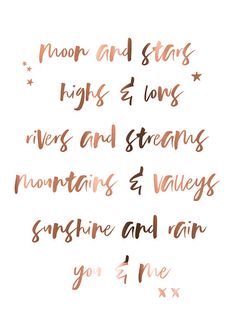 moon and stars
highs & lows
rivers and streams
mountains & valleys
sunshine and rain
you & me
xx